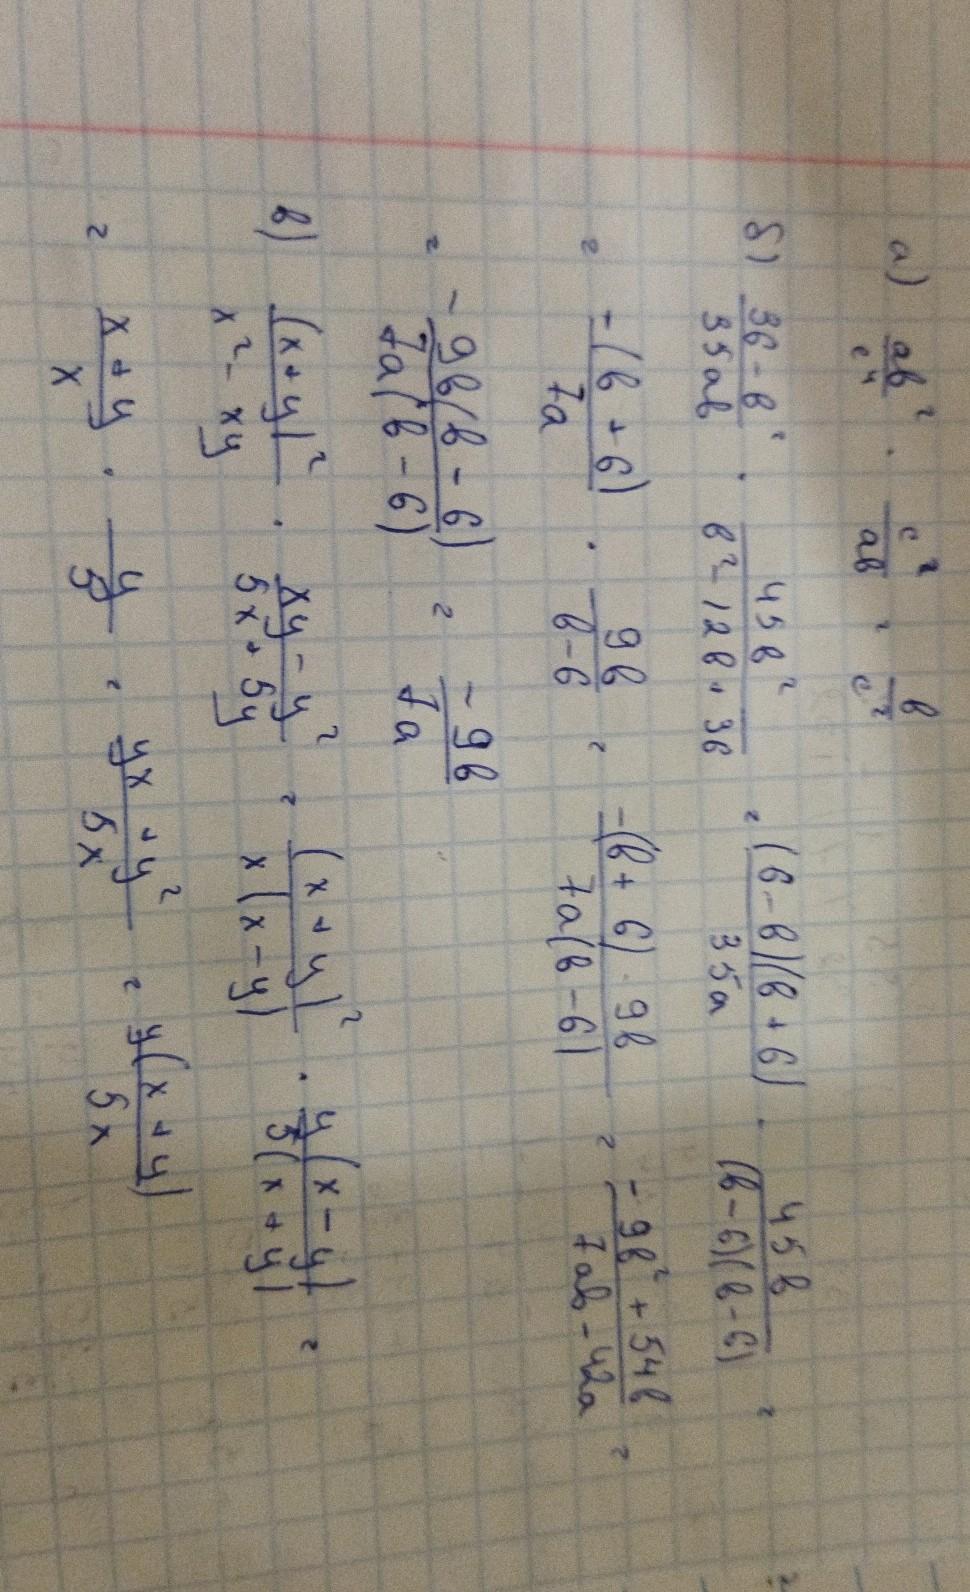 а) ab²/c⁴ · c²/ab = b/c²
б) 36 - b²/35ab · 45b²/b² - 12b + 36 = (6 - b)(b + 6)/35a · 45b/(b - 6)(b - 6) =
= -(b + 6)/7a · 9b/b - 6 = -(b + 6) · 9b/7a(b - 6) = -9b² + 54b/7ab - 42a =
= -9b(b - 6)/7a(b - 6) = -9b/7a
в) (x + y)²/x² - xy · xy - y²/5x + 5y = (x + y)²/x(x - y) · y(x - y)/5(x + y) =
= x + y/x · y/5 = yx + y²/5x = y(x + y)/5x